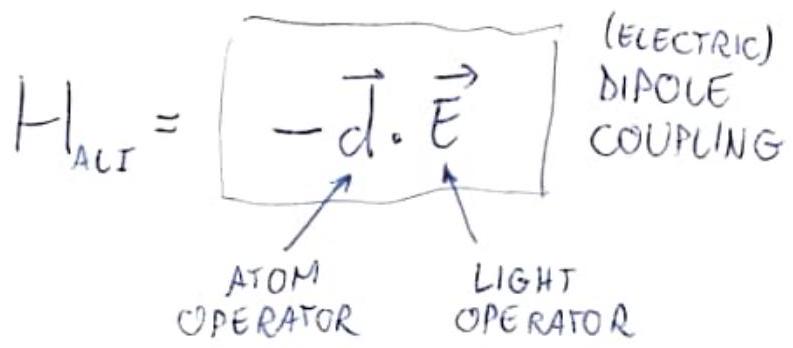 H_ALI = -d⃗ · E⃗
(ELECTRIC)
DIPOLE
COUPLING
ATOM
OPERATOR
LIGHT
OPERATOR